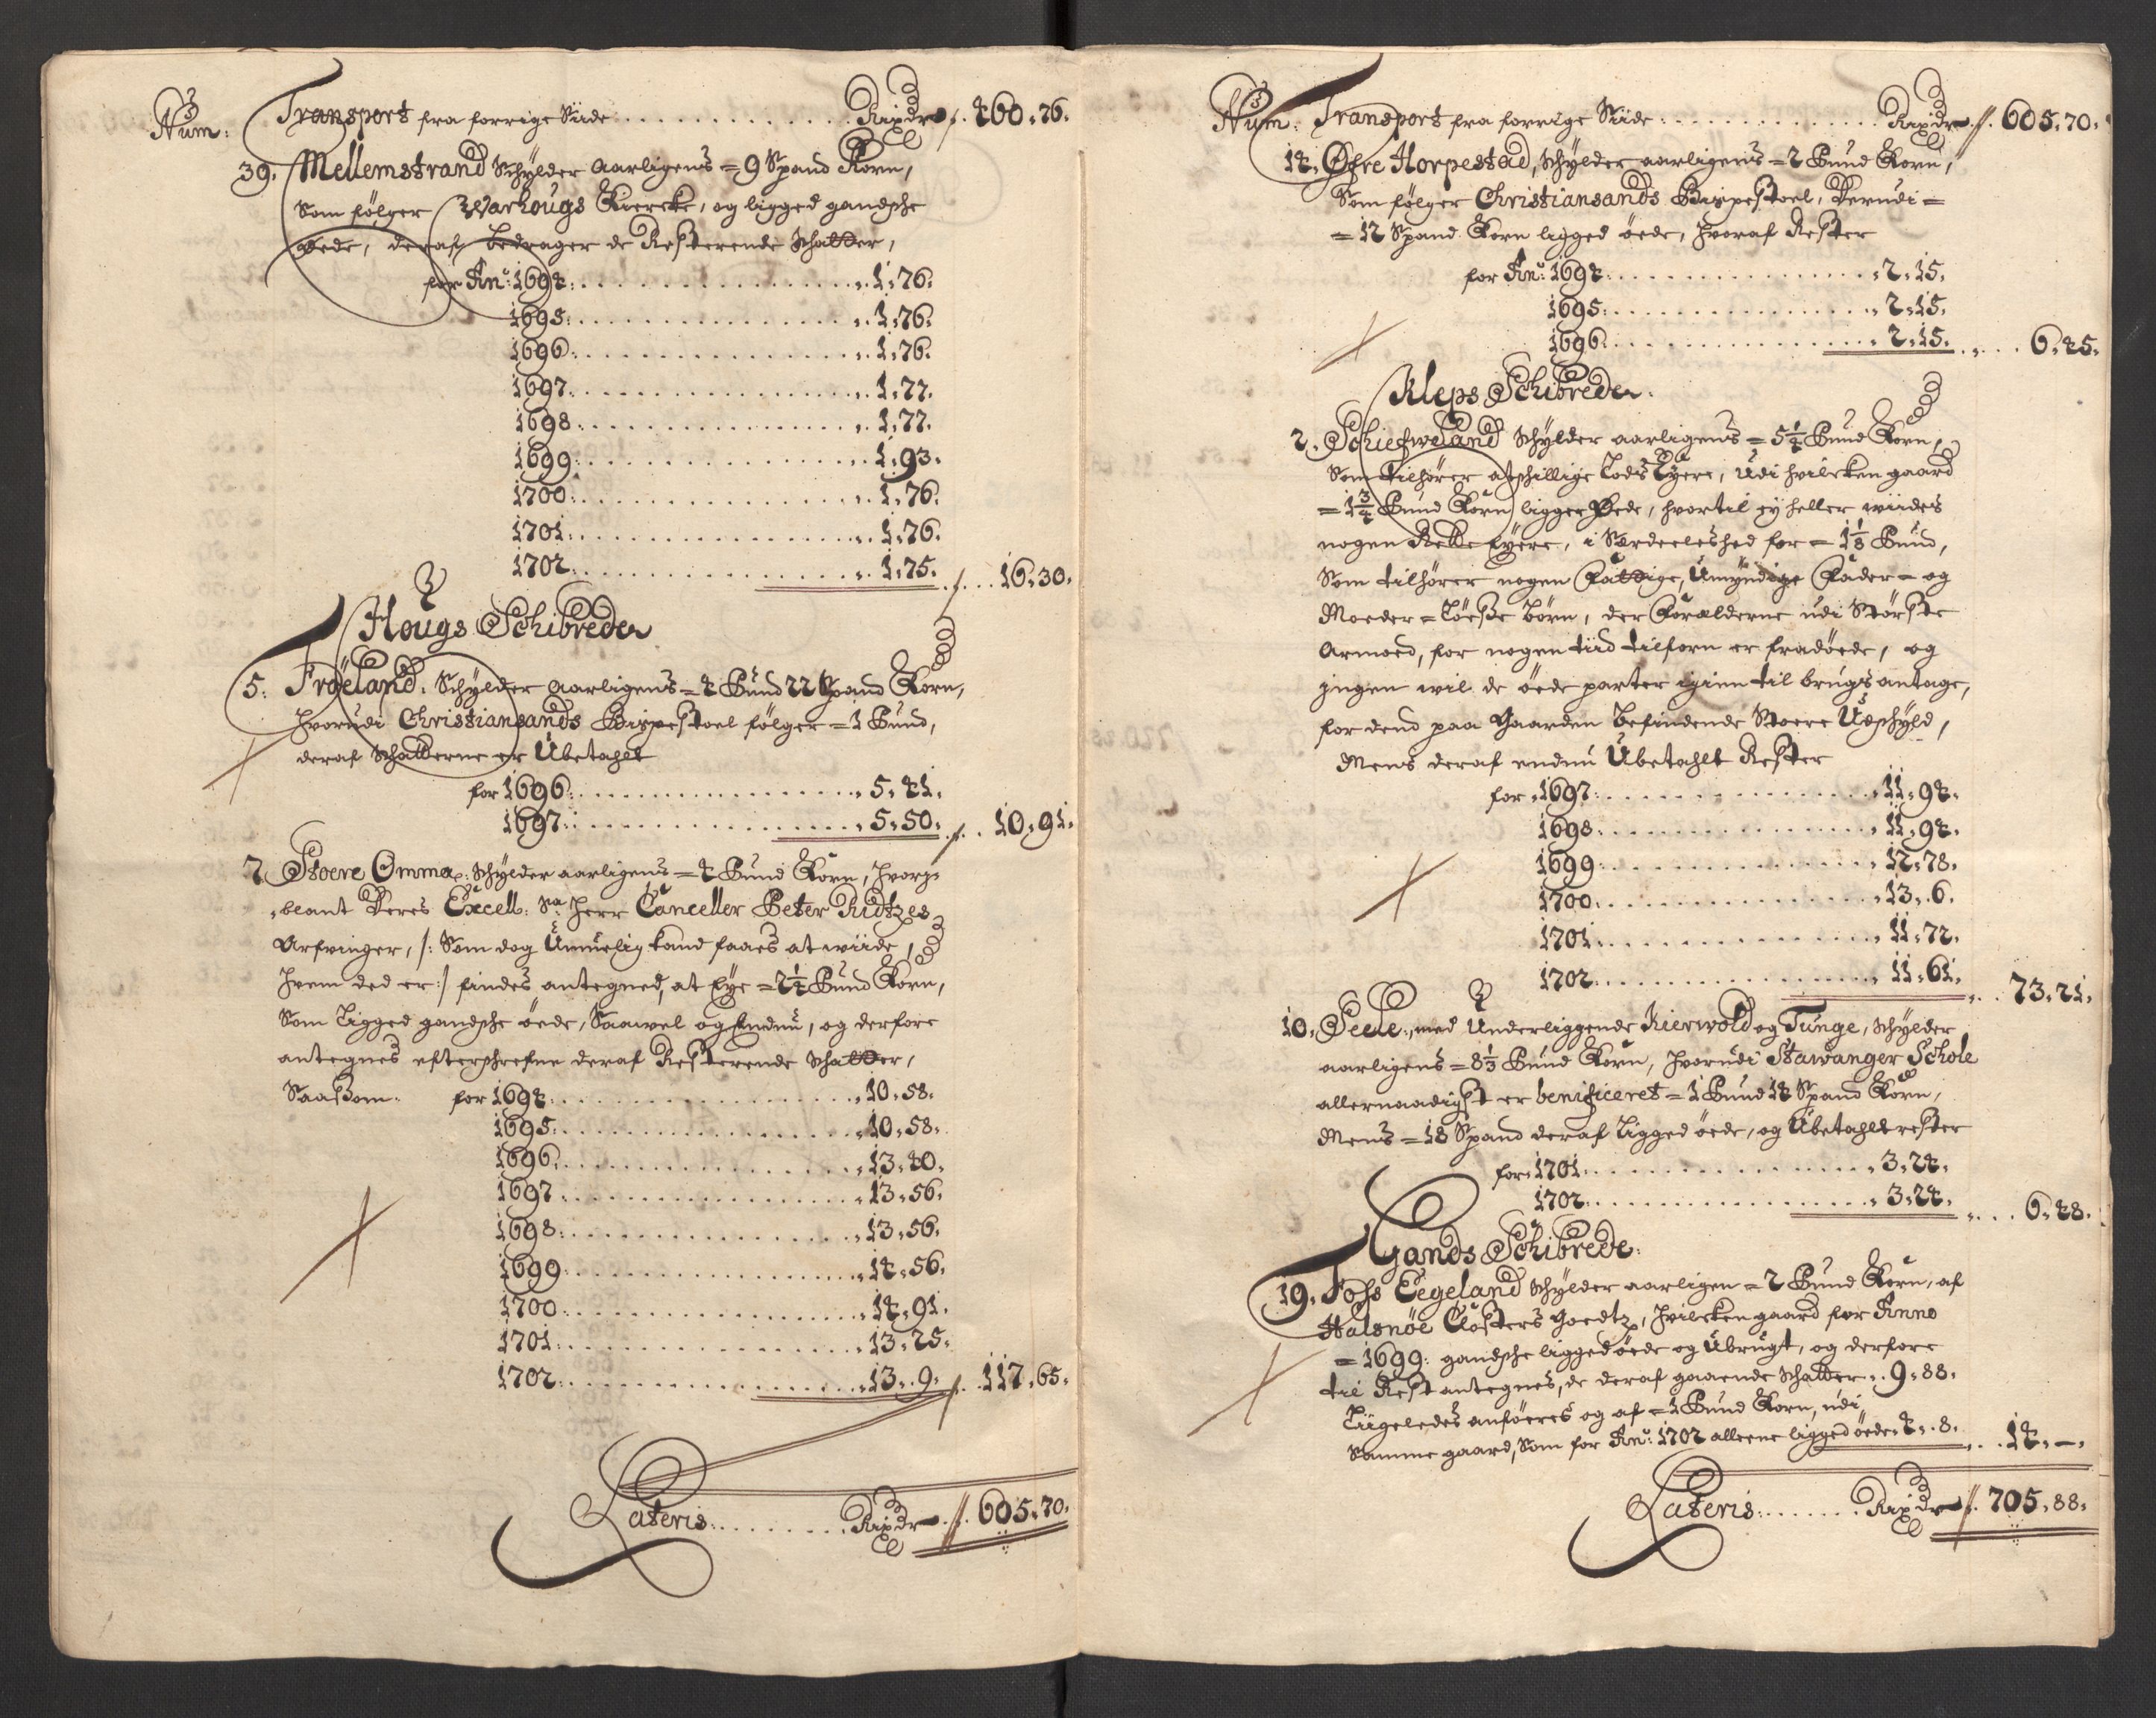 Num: Transport fra forrige Siide . . . Rixdr 460,76.
39. Mellemstrand Schylder aarligens = 9 Spand Korn,
Som følger Warhougs Kiercke, og ligged gandsche
øede, deraf bedrager de Resterende Schatter,
for An: 1694: . . . 1,76.
1695: . . . 1,76.
1696: . . . 1,76.
1697: . . . 1,77.
1698: . . . 1,77.
1699: . . . 1,93.
1700: . . . 1,76.
1701: . . . 1,76.
1702: . . . 1,75. . . 16,30.
Hougs Schibreder
5. Fröeland. Schylder aarligens = 4 Pund 22 Spand Korn,
hvorudi Christiansands Bispestoel følger = 1 Pund,
deraf Schatterne er Ubetahlt
for 1696: . . . 5,41.
1697: . . . 5,50. . . 10,91.
7. Stoere Omma: Schylder aarligens = 4 Pund Korn, hvorj=
=blant Deres Excell: Sa: Herr Canceller Peter Ridtzes
Arfvinger, /: Som dog Umuelig kand faaes at wiide,
hvem ded er :/ findes antegned, at Eye = 2 1/4 Pund Korn,
Som ligged gandsche öede, Saawel og Endnu, og derfore
antegnes efterschrefne deraf Resterende Schatter,
Saasom. for 1694: . . . 10,58.
1695: . . . 10,58.
1696: . . . 13,40.
1697: . . . 13,56.
1698: . . . 13,56.
1699: . . . 14,56.
1700: . . . 14,91.
1701: . . . 13,25.
1702: . . . 13,,9. . . 117,65.
Lateris: . . . Rixdr 605,70.
Num: Transport fra forrige Siide: . . . Rixdr 605,70.
14. Øfre Horpestad, Schylder aarligens = 2 Pund Korn,
Som følger Christiansands Bispestoel, Derudi =
= 12 Spand Korn ligged öede, hvoraf Rester
for An: 1694: . . . 2,15.
1695: . . . 2,15.
1696: . . . 2,15. . . 6,45.
Kleps Schibreder.
2. Schiefweland Schylder aarligens = 5 1/4 Pund Korn,
Som tilhører atschillige Lods Eyere, Udi hvilcken gaard
= 1 3/4 Pund Korn ligger Øede, hvortil ey heller wiides
nogen Rette Eyere, i Særdeeleshed for = 1 1/8 Pund,
Som tilhører nogen Fattige, Umyndige Fader= og
Moeder=Löesse börn, der Forælderne udi Störste
Armoed, for nogen tiid tilforn er fradöede, og
jngen wil de öede parter igien til brugs antage,
for dend paa Gaarden befindende Stoere Udschyld,
Mens deraf endnu Ubetahlt Rester
for 1697: . . . 11,94.
1698: . . . 11,94.
1699: . . . 12,78.
1700: . . . 13,,6.
1701: . . . 11,72.
1702: . . . 11,61. . . 73,21.
10. Seele, med Underliggende Kierwold og Tunge, Schylder
aarligens = 8 1/3 Pund Korn, hvorudi Stawanger Schole
allernaadigst er benificeret = 1 Pund 18 Spand Korn,
Mens = 18 Spand deraf ligged öede, og Ubetahlt rester
for 1701: . . . 3,24.
1702: . . . 3,24. . . 6,48.
Gands Schibrede.
19. Fohs Eegeland Schylder aarligen = 2 Pund Korn, af
Halsnöe Closters Goedtz, hvilcken gaard for Anno
= 1699: gandsche ligged öede og Ubrugt, og derfore
til Rest antegnes, de deraf gaaende Schatter . . 9,88.
Liigeledes anföeres og af = 1 Pund Korn, udi
Samme gaard, Som for An: 1702 alleene ligged öede . 4,,8. . . 14,–,
Lateris: . . . Rixdr 705,88.